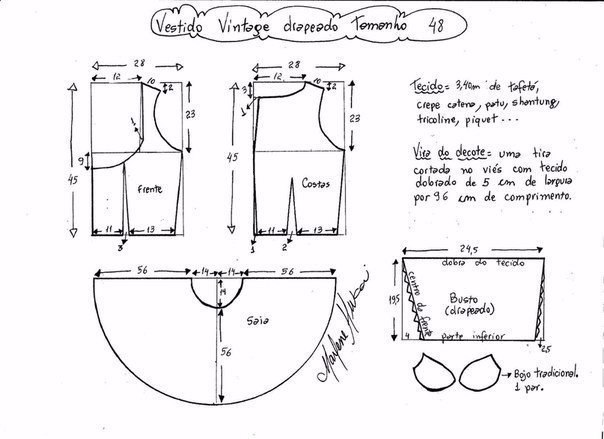 Vestido Vintage drapeado Tamanho 48
28
12
10
2
23
1
9
45
Frente
11
13
3
28
12
10
2
3
1
23
45
Costas
11
13
1
2
Tecido = 3,40m de tafetá,
crepe
patu, shantung,
tricoline, piquet ...
Vira do decote = uma tira
cortada no viés com tecido
dobrado de 5 cm de largura
por 96 cm de comprimento.
56
14
14
56
14
Saia
56
Marlene Mukai
24,5
dobra do tecido
19,5
centro da frente
Busto
(drapeado)
4
parte inferior
2,5
Bojo tradicional.
1 par.